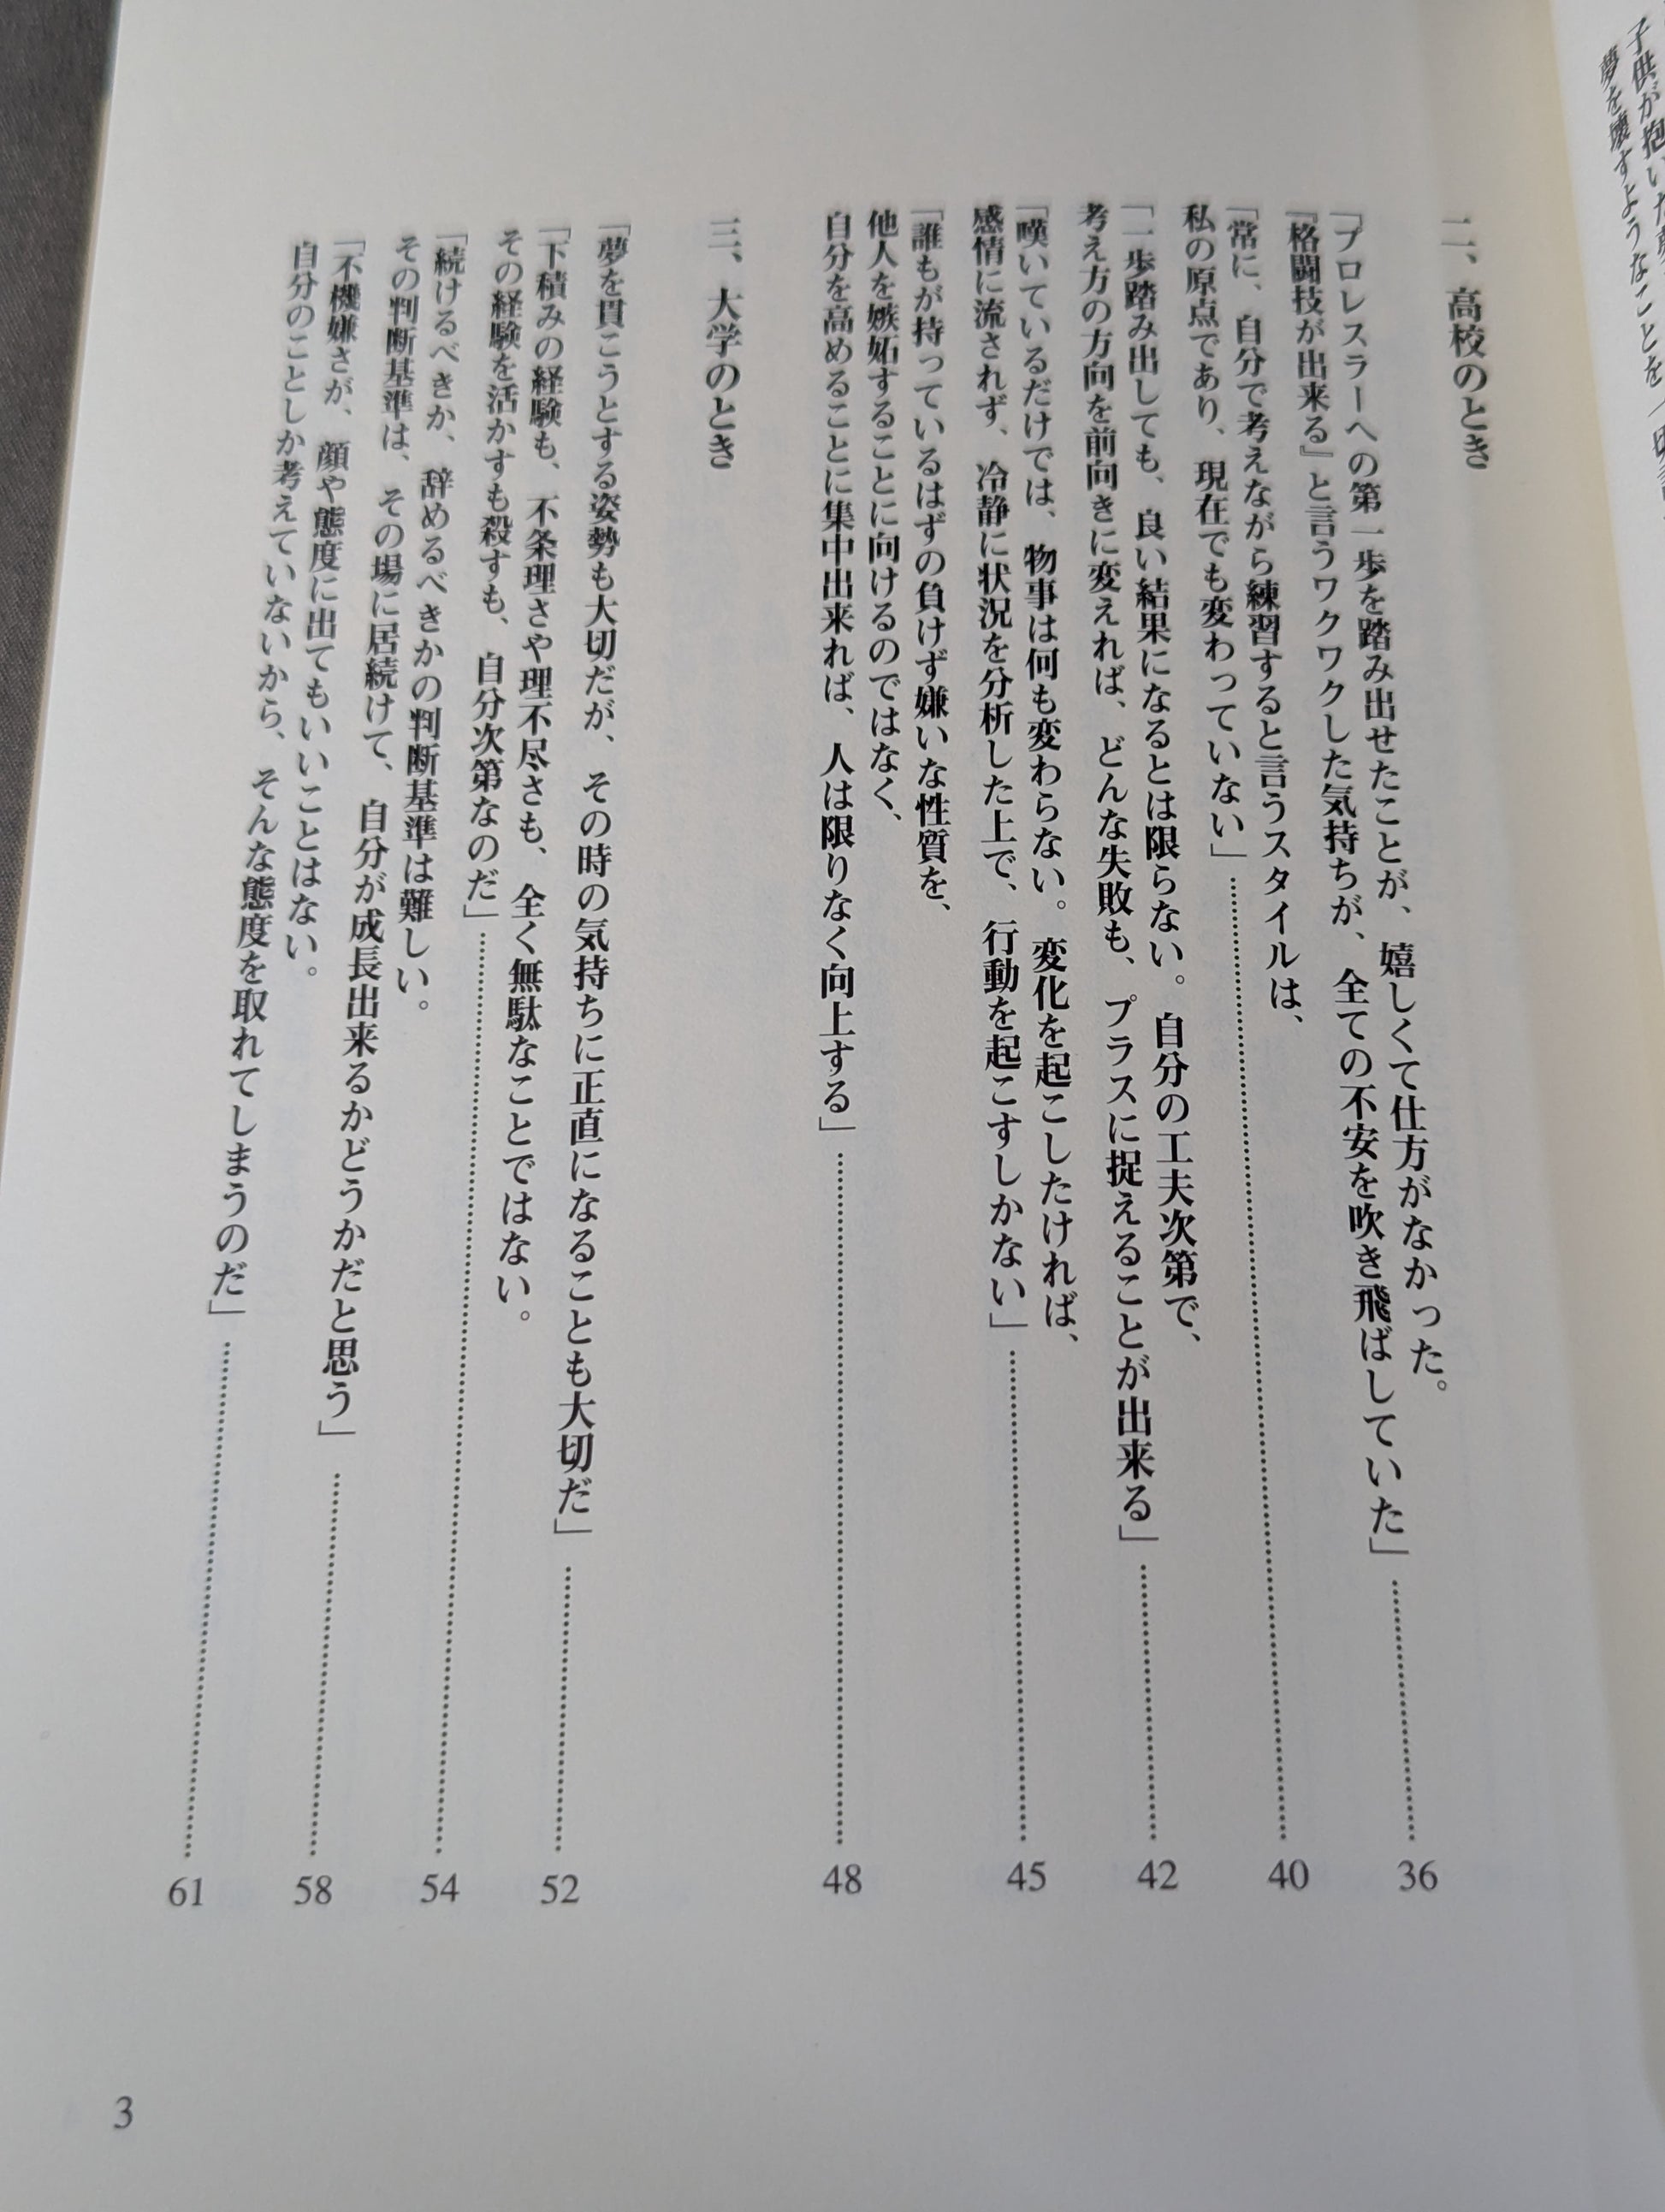 子供が抱いた夢
夢を壊すようなことを
二、高校のとき
「プロレスラーへの第一歩を踏み出せたことが、嬉しくて仕方がなかった。
『格闘技が出来る』と言うワクワクした気持ちが、全ての不安を吹き飛ばしていた」……36
「常に、自分で考えながら練習すると言うスタイルは、
私の原点であり、現在でも変わっていない」……40
「一歩踏み出しても、良い結果になるとは限らない。自分の工夫次第で、
考え方の方向を前向きに変えれば、どんな失敗も、プラスに捉えることが出来る」……42
「嘆いているだけでは、物事は何も変わらない。変化を起こしたければ、
感情に流されず、冷静に状況を分析した上で、行動を起こすしかない」……45
「誰もが持っているはずの負けず嫌いな性質を、
他人を嫉妬することに向けるのではなく、
自分を高めることに集中出来れば、人は限りなく向上する」……48
三、大学のとき
「夢を貫こうとする姿勢も大切だが、その時の気持ちに正直になることも大切だ」……52
「下積みの経験も、不条理さや理不尽さも、全く無駄なことではない。
その経験を活かすも殺すも、自分次第なのだ」……54
「続けるべきか、辞めるべきかの判断基準は難しい。
その判断基準は、その場に居続けて、自分が成長出来るかどうかだと思う」……58
「不機嫌さが、顔や態度に出てもいいことはない。
自分のことしか考えていないから、そんな態度を取れてしまうのだ」……61
3